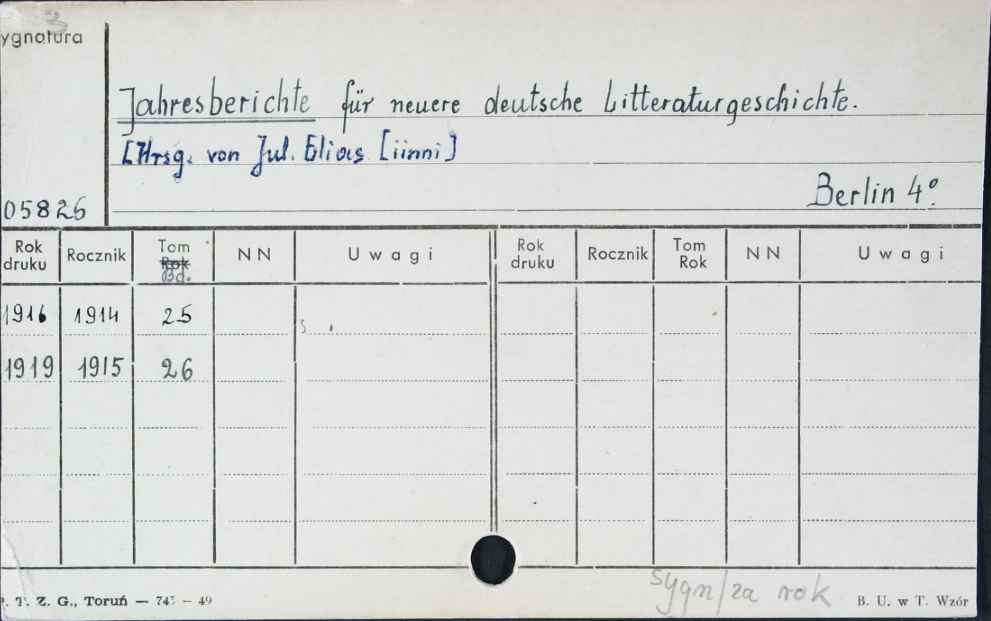 ygnatura
Jahresberichte für neuere deutsche Litteraturgeschichte.
[Hrsg. von Jul. Elias [iinni]
Berlin 4º.
05826
Rok druku Rocznik Tom Rok Bd. NN Uwagi Rok druku Rocznik Tom Rok NN Uwagi
1916 1914 25
1919 1915 26
sygn/za rok
. T. Z. G., Toruń — 745 — 49 B. U. w T. Wzór